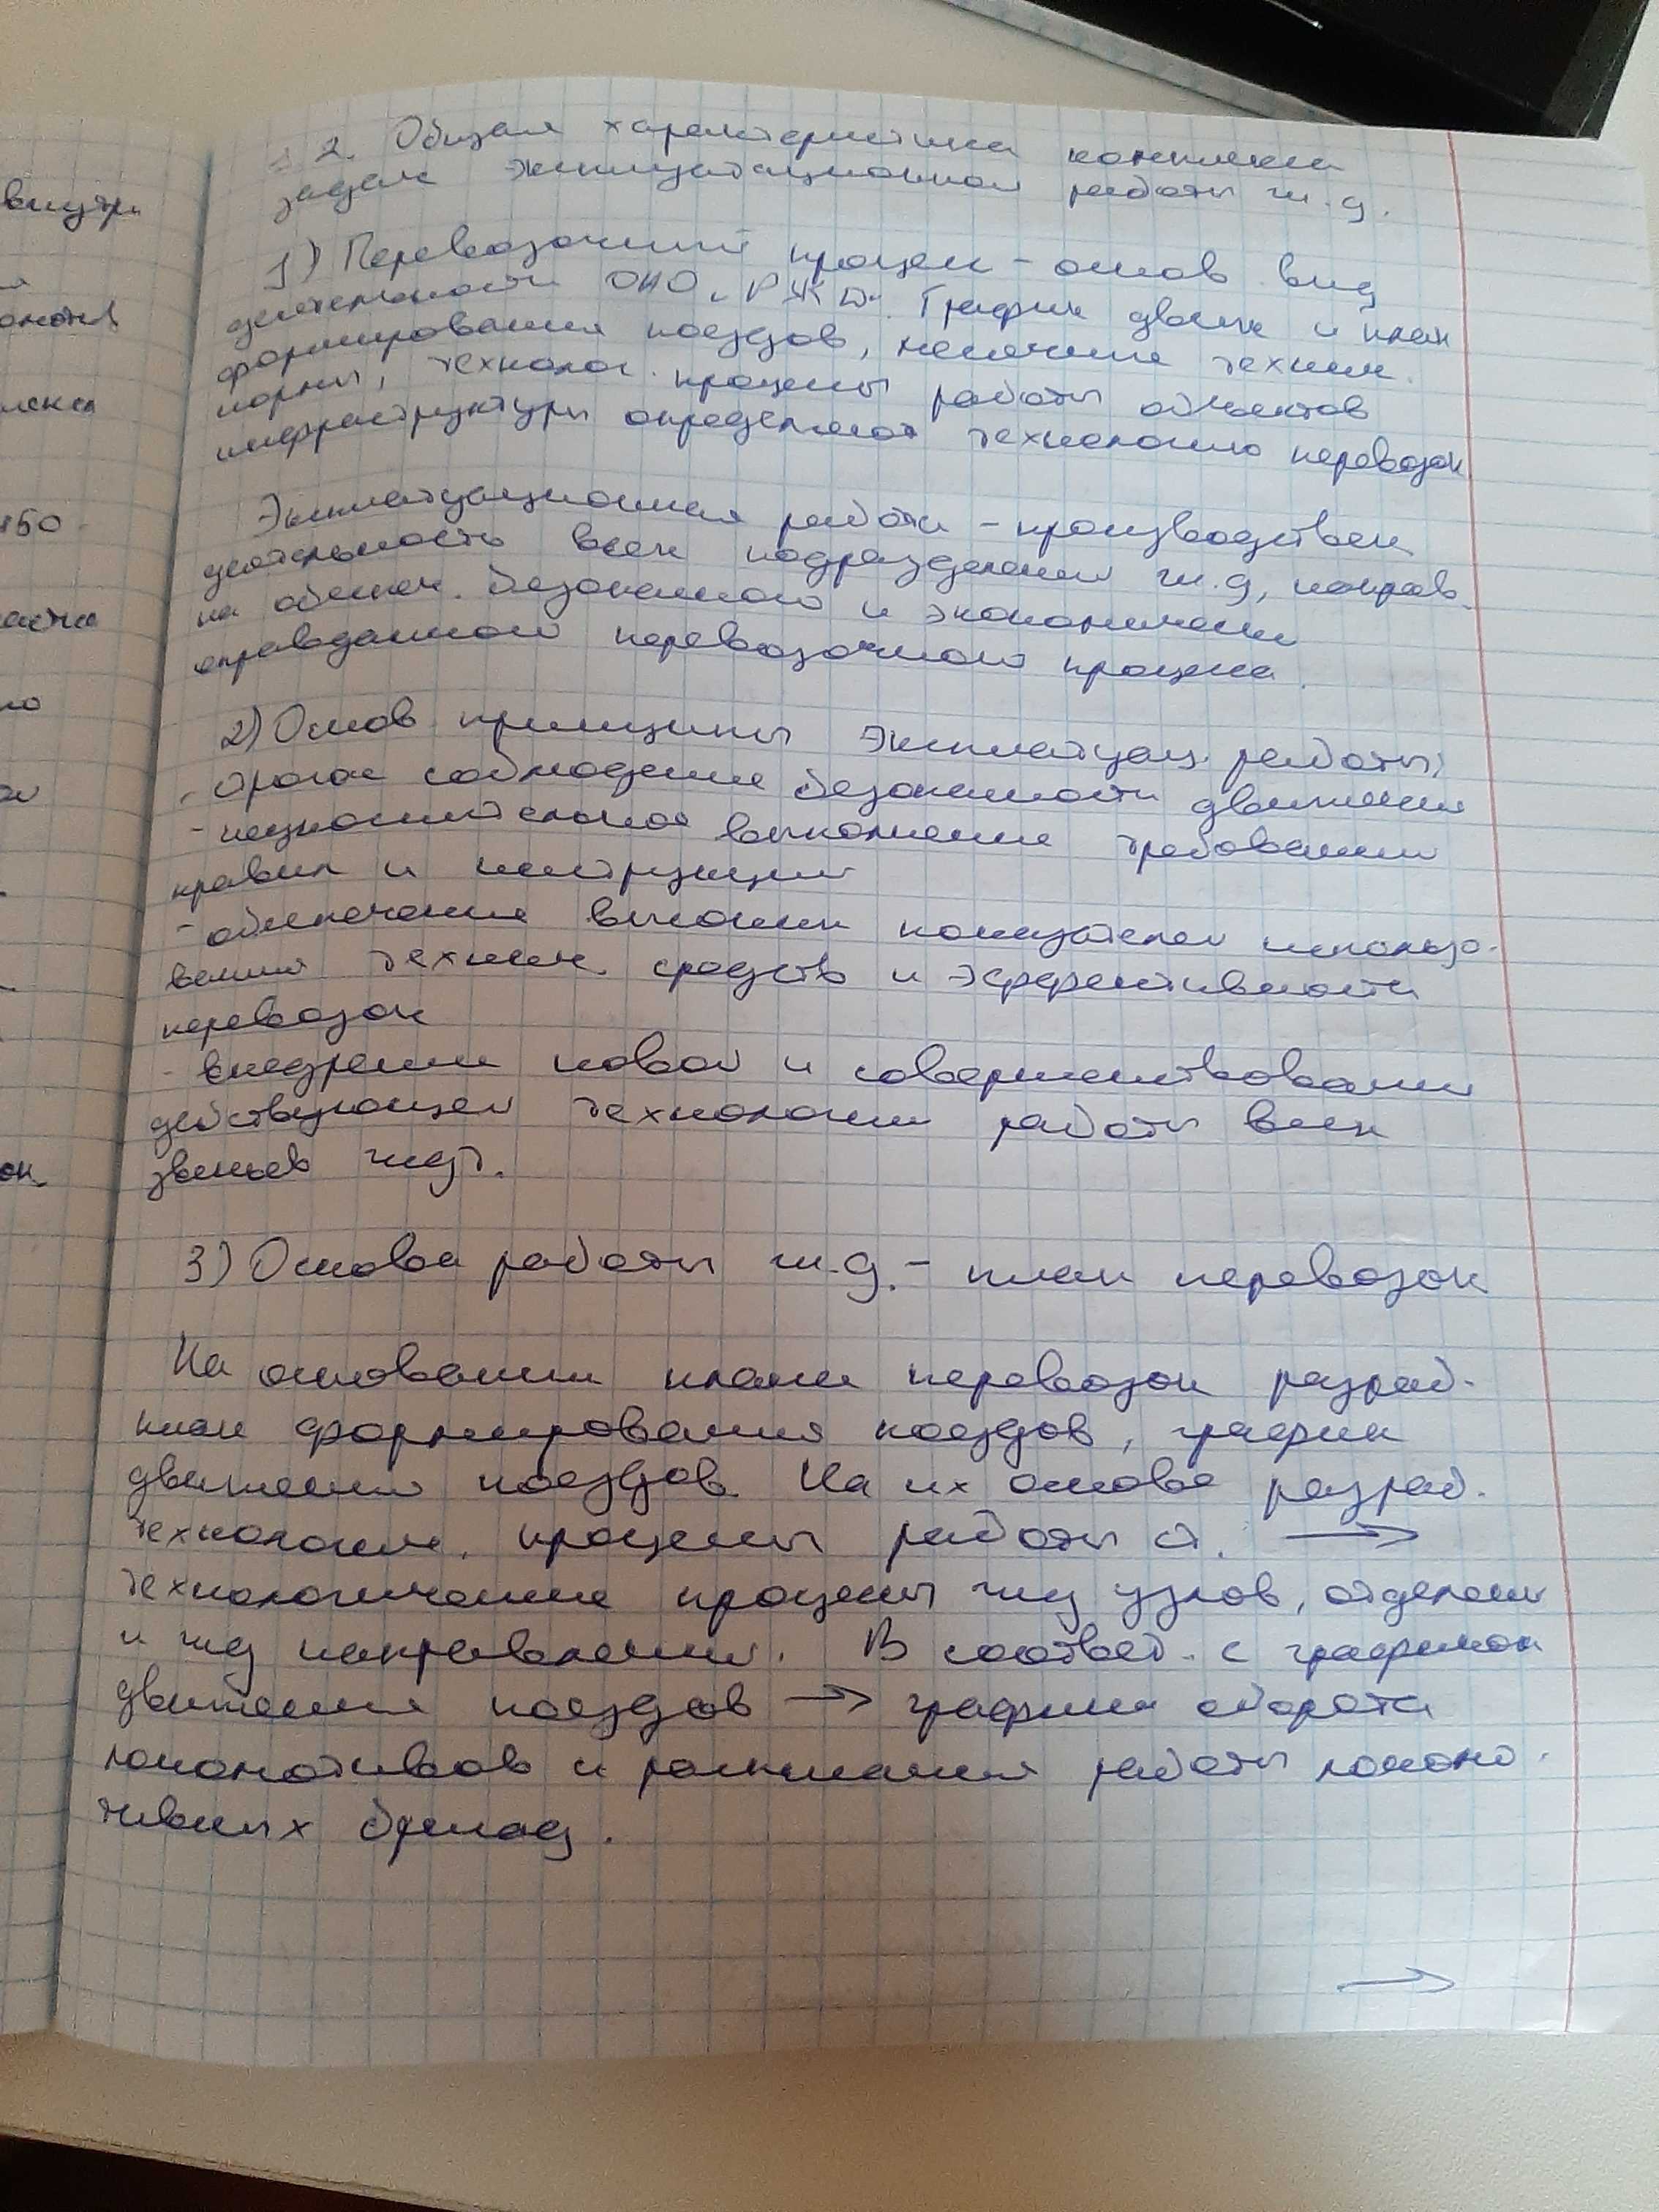 2. Общая характеристика комплекса
задач эксплуатационной работы ж.д.
1) Перевозочный процесс - основ вид
деятельности ОАО "РЖД". График движ и план
формирования поездов, месячные технич.
нормы, технолог. процессы работы объектов
инфраструктуры определяют технологию перевозок
Эксплатуационная работа - производствен
деятельность всех подразделений ж.д, направ.
на обеспеч. безопасного и экономически
оправданного перевозочного процесса.
2) Основ принципы эксплатуац. работы:
- строгое соблюдение безопасности движения
- неукоснительное выполнение требований
правил и инструкций
- обеспечение высоких показателей использо-
вания технич. средств и эффективности
перевозок
- внедрение новой и совершенствование
действующей технологии работы всех
звеньев ждт.
3) Основа работы ж.д. - план перевозок
На основании плана перевозок разраб.
план формирования поездов, график
движения поездов. На их основе разраб.
технологич. процессы работы ст. →
технологические процессы жд узлов, отделений
и жд направлений. В соответ. с графиком
движения поездов → графики оборота
локомотивов и расписания работы локомо-
тивных бригад.
→
внутри
450